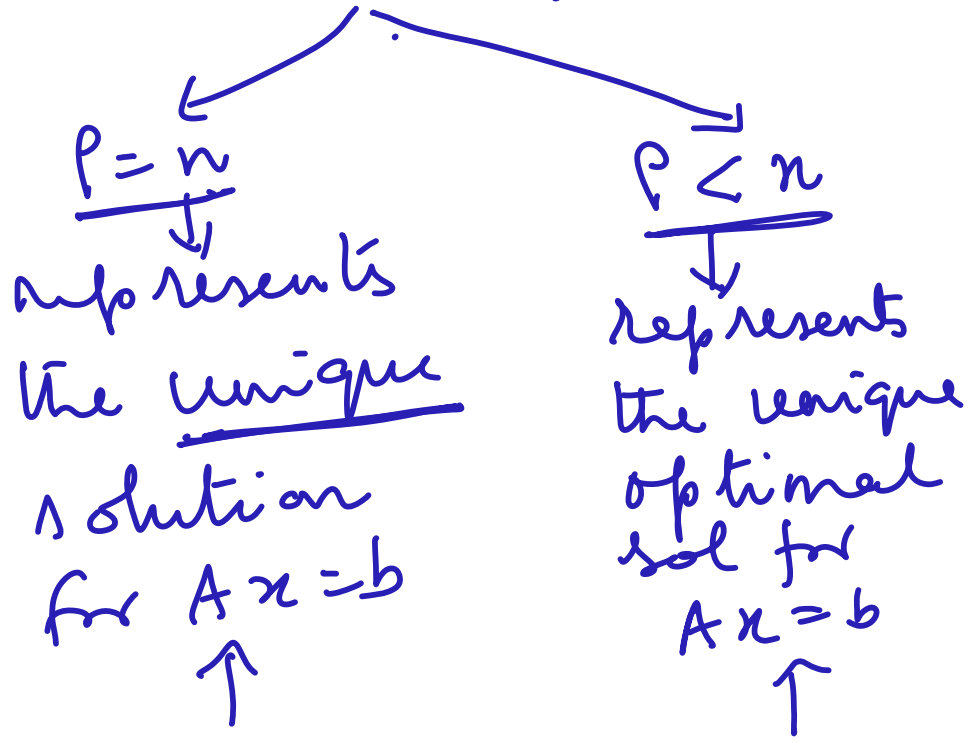 P = n
represents
the unique
solution
for Ax = b
P < n
represents
the unique
optimal
sol for
Ax = b